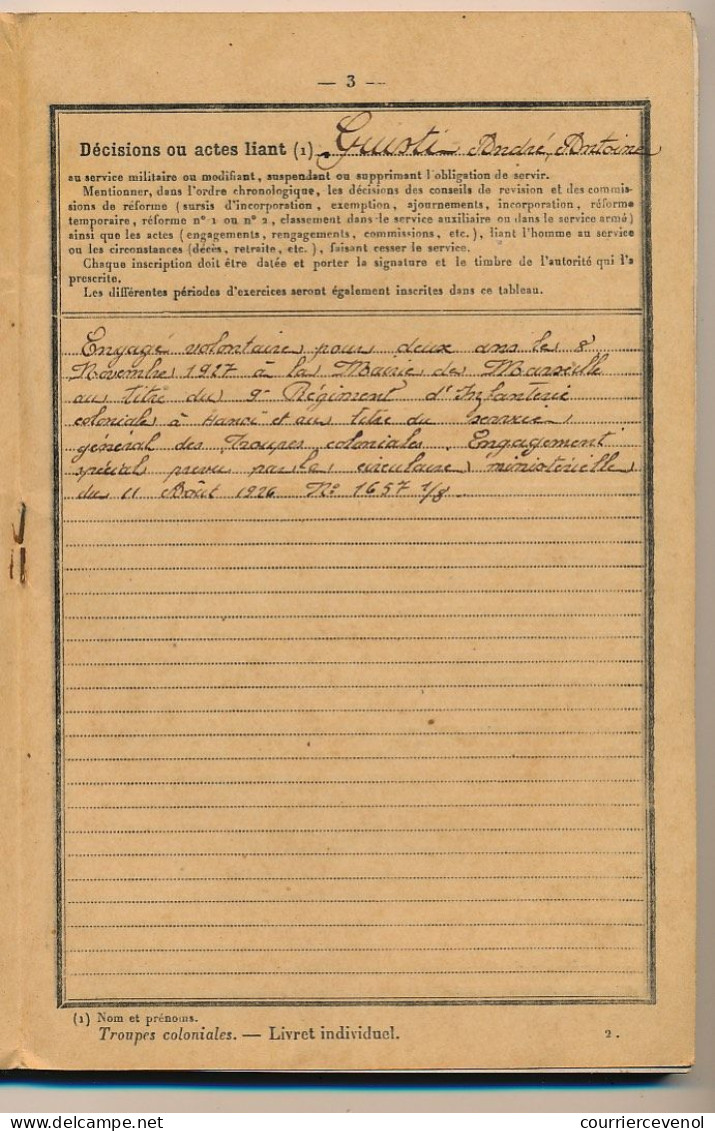 — 3 —
Décisions ou actes liant (1) Guisti André, Antoine
au service militaire ou modifiant, suspendant ou supprimant l'obligation de servir.
Mentionner, dans l'ordre chronologique, les décisions des conseils de revision et des commis-
sions de réforme (sursis d'incorporation, exemption, ajournements, incorporation, réforme
temporaire, réforme n° 1 ou n° 2, classement dans le service auxiliaire ou dans le service armé)
ainsi que les actes (engagements, rengagements, commissions, etc.), liant l'homme au service
ou les circonstances (décès, retraite, etc.), faisant cesser le service.
Chaque inscription doit être datée et porter la signature et le timbre de l'autorité qui l'a
prescrite.
Les différentes périodes d'exercices seront également inscrites dans ce tableau.
Engagé volontaire pour deux ans le 8
Novembre 1927 à la Mairie de Marseille
au titre du 9e Régiment d'Infanterie
coloniale à Hanoï et au titre du service
général des Troupes coloniales. Engagement
spécial prevu par la circulaire ministérielle
du 11 Août 1926 No 1657 1/8.
(1) Nom et prénoms.
Troupes coloniales. — Livret individuel. 2.
courriercevenol